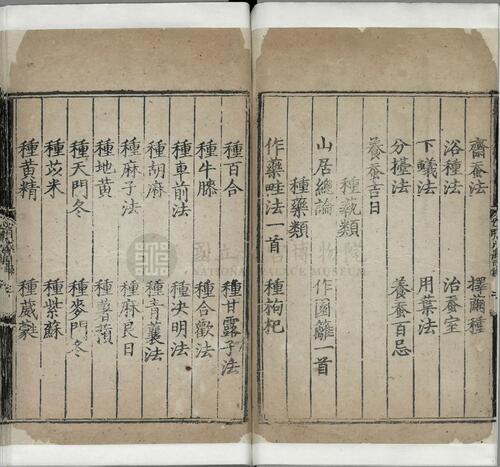 齋蚕法 擇繭種
浴種法 治蚕室
下蟻法 用葉法
分擡法 養蚕百忌
養蚕吉日
種蓺類
山居總論 作園籬一首
種藥類
作藥畦法一首 種拘杞
種百合 種甘露子法
種牛膝 種合歡法
種車前法 種决明法
種胡麻 種青蘘法
種麻子法 種麻良日
種地黃 種薯蕷
種天門冬 種麥門冬
種苡米 種紫蘇
種黃精 種葳蕤
國立故宮博物院
NATIONAL PALACE MUSEUM